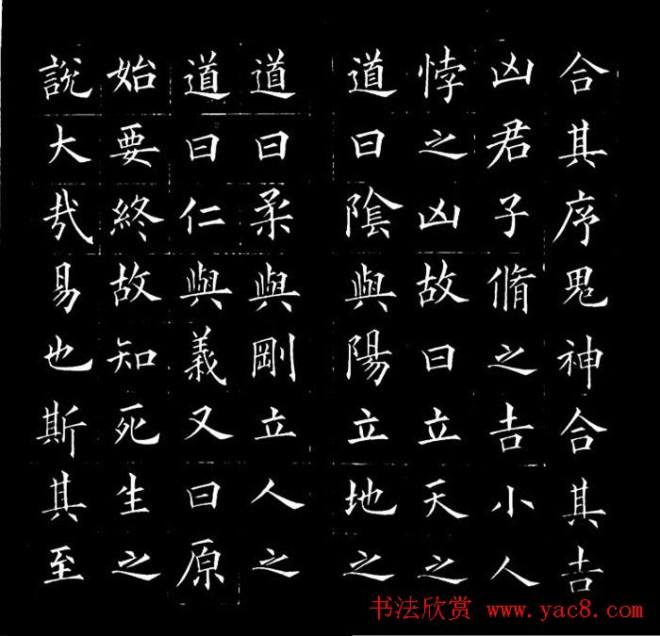 合其序鬼神合其吉
凶君子脩之吉小人
悖之凶故曰立天之
道曰陰與陽立地之
道曰柔與剛立人之
道曰仁與義又曰原
始要終故知死生之
說大哉易也斯其至
书法欣赏 www.yac8.com